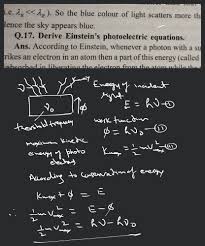 i.e. λb << λr). So the blue colour of light scatters more th
hence the sky appears blue.
Q.17. Derive Einstein's photoelectric equations.
Ans. According to Einstein, whenever a photon with a su
rikes an electron in an atom then a part of this energy (called
absorbed in liberating the electron from the atom while the
Energy of incident
light
E = hν
ν₀
threshold frequency
work function
ϕ = hν₀
maximum kinetic
energy of photo
electrons
Kmax = ½mV²max
According to conservation of energy
Kmax + ϕ = E
∴ ½mV²max = E - ϕ
½mV²max = hν - hν₀